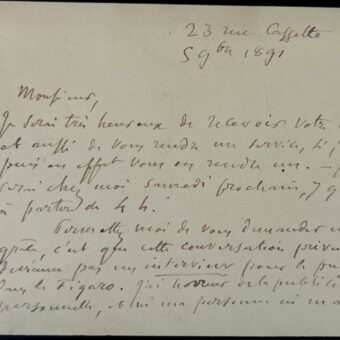 23 rue Cassette
5 9bre 1891
Monsieur,
Je serai très heureux de recevoir votre
et aussi de vous rendre un service, si je
puis en effet vous en rendre un. — Je
serai chez moi samedi prochain, 7 9
à partir de 4 h.
Permettez moi de vous demander une
grâce, c'est que cette conversation privée
devienne pas un interview pour le pu
dans le Figaro. J'ai horreur de la publicité
personnelle, et ni ma personne ni ma